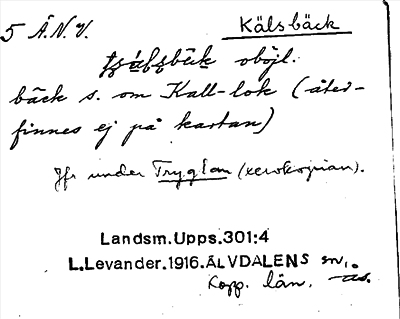 5 Ä.N.V. Kälsbäck
oböjl.
bäck s. om Kall-lok (åter-
finnes ej på kartan)
Jfr under Tryglam (xerokopian).
Landsm.Upps.301:4
L.Levander.1916.ÄLVDALENS sn,
Kopp. län.